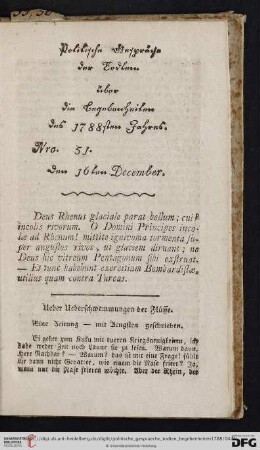 Politische Gespräche
der Todten
über
die Begebenheiten
des 1788sten Jahres.
Nro. 51.
Den 16ten December.
Deus Rhenus glaciale parat bellum; cui
incolis rivorum. O Domini Principes inco-
læ ad Rhenum! mittite ignivoma tormenta su-
per angustos rivos, ut glaciem diruant; ne
Deus hic vitreum Pentagonum sibi exstruat.
— Et tunc habebunt exercitium Bombardistæ,
utilius quam contra Turcas.
Ueber Ueberschwemmungen der Flüsse.
Eine Zeitung — mit Aengsten geschrieben.
Ei gehet zum Kukuk mit eueren Kriegsneuigkeiten, ich
habe weder Zeit noch Laune sie zu lesen. Warum dann,
Herr Nachbar? — Warum? das ist mir eine Frage! fühlt
ihr dann nicht Gevatter, wie einem die Nase friert? Ja,
wann nur die Nase frieren möchte. Aber der Rhein, der
DFG